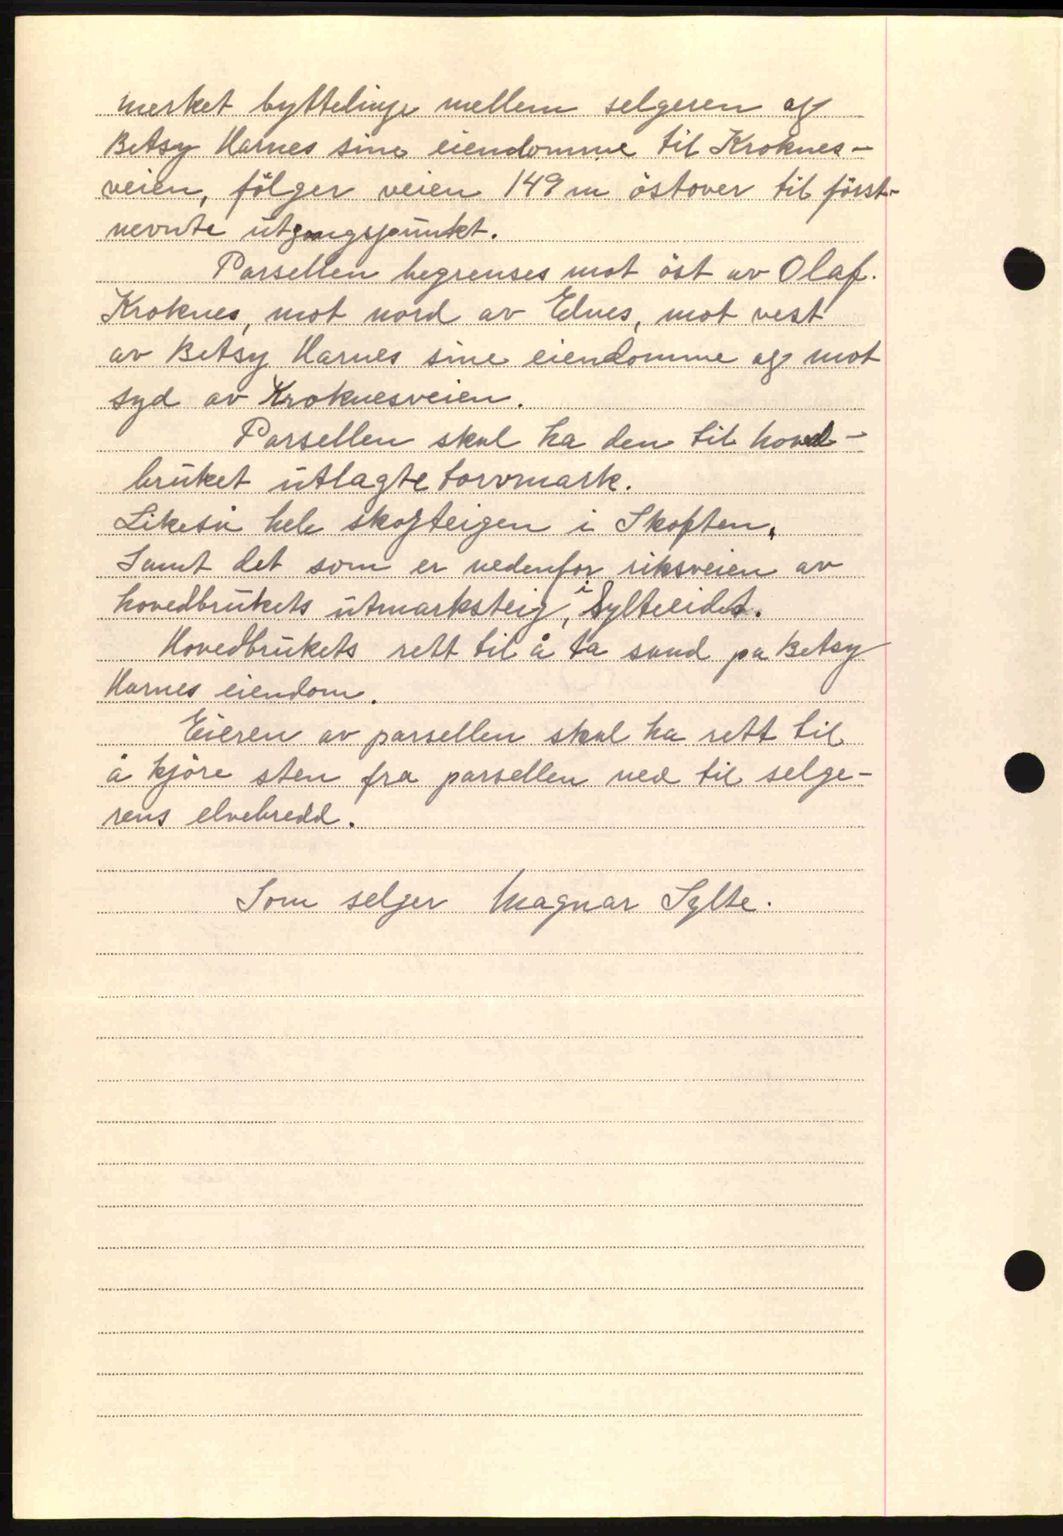 merket byttelinje mellem selgeren og
Betsy Harnes sine eiendomme til Kroknes-
veien, følger veien 149 m östover til först-
nevnte utgangspunkt.
Parsellen begrenses mot öst av Olaf.
Kroknes, mot nord av Elnes, mot vest
av Betsy Harnes sine eiendomme og mot
syd av Kroknesveien.
Parsellen skal ha den til hoved-
bruket utlagte torvmark.
Likeså hele skogteigen i Skoften,
Samt det som er nedenfor riksveien av
hovedbrukets utmarksteig, i Sylteeidet.
Hovedbrukets rett til å ta sand på Betsy
Harnes eiendom.
Eieren av parsellen skal ha rett til
å kjöre sten fra parsellen ned til selge-
rens elvebredd.
Som selger Magnar Sylte.